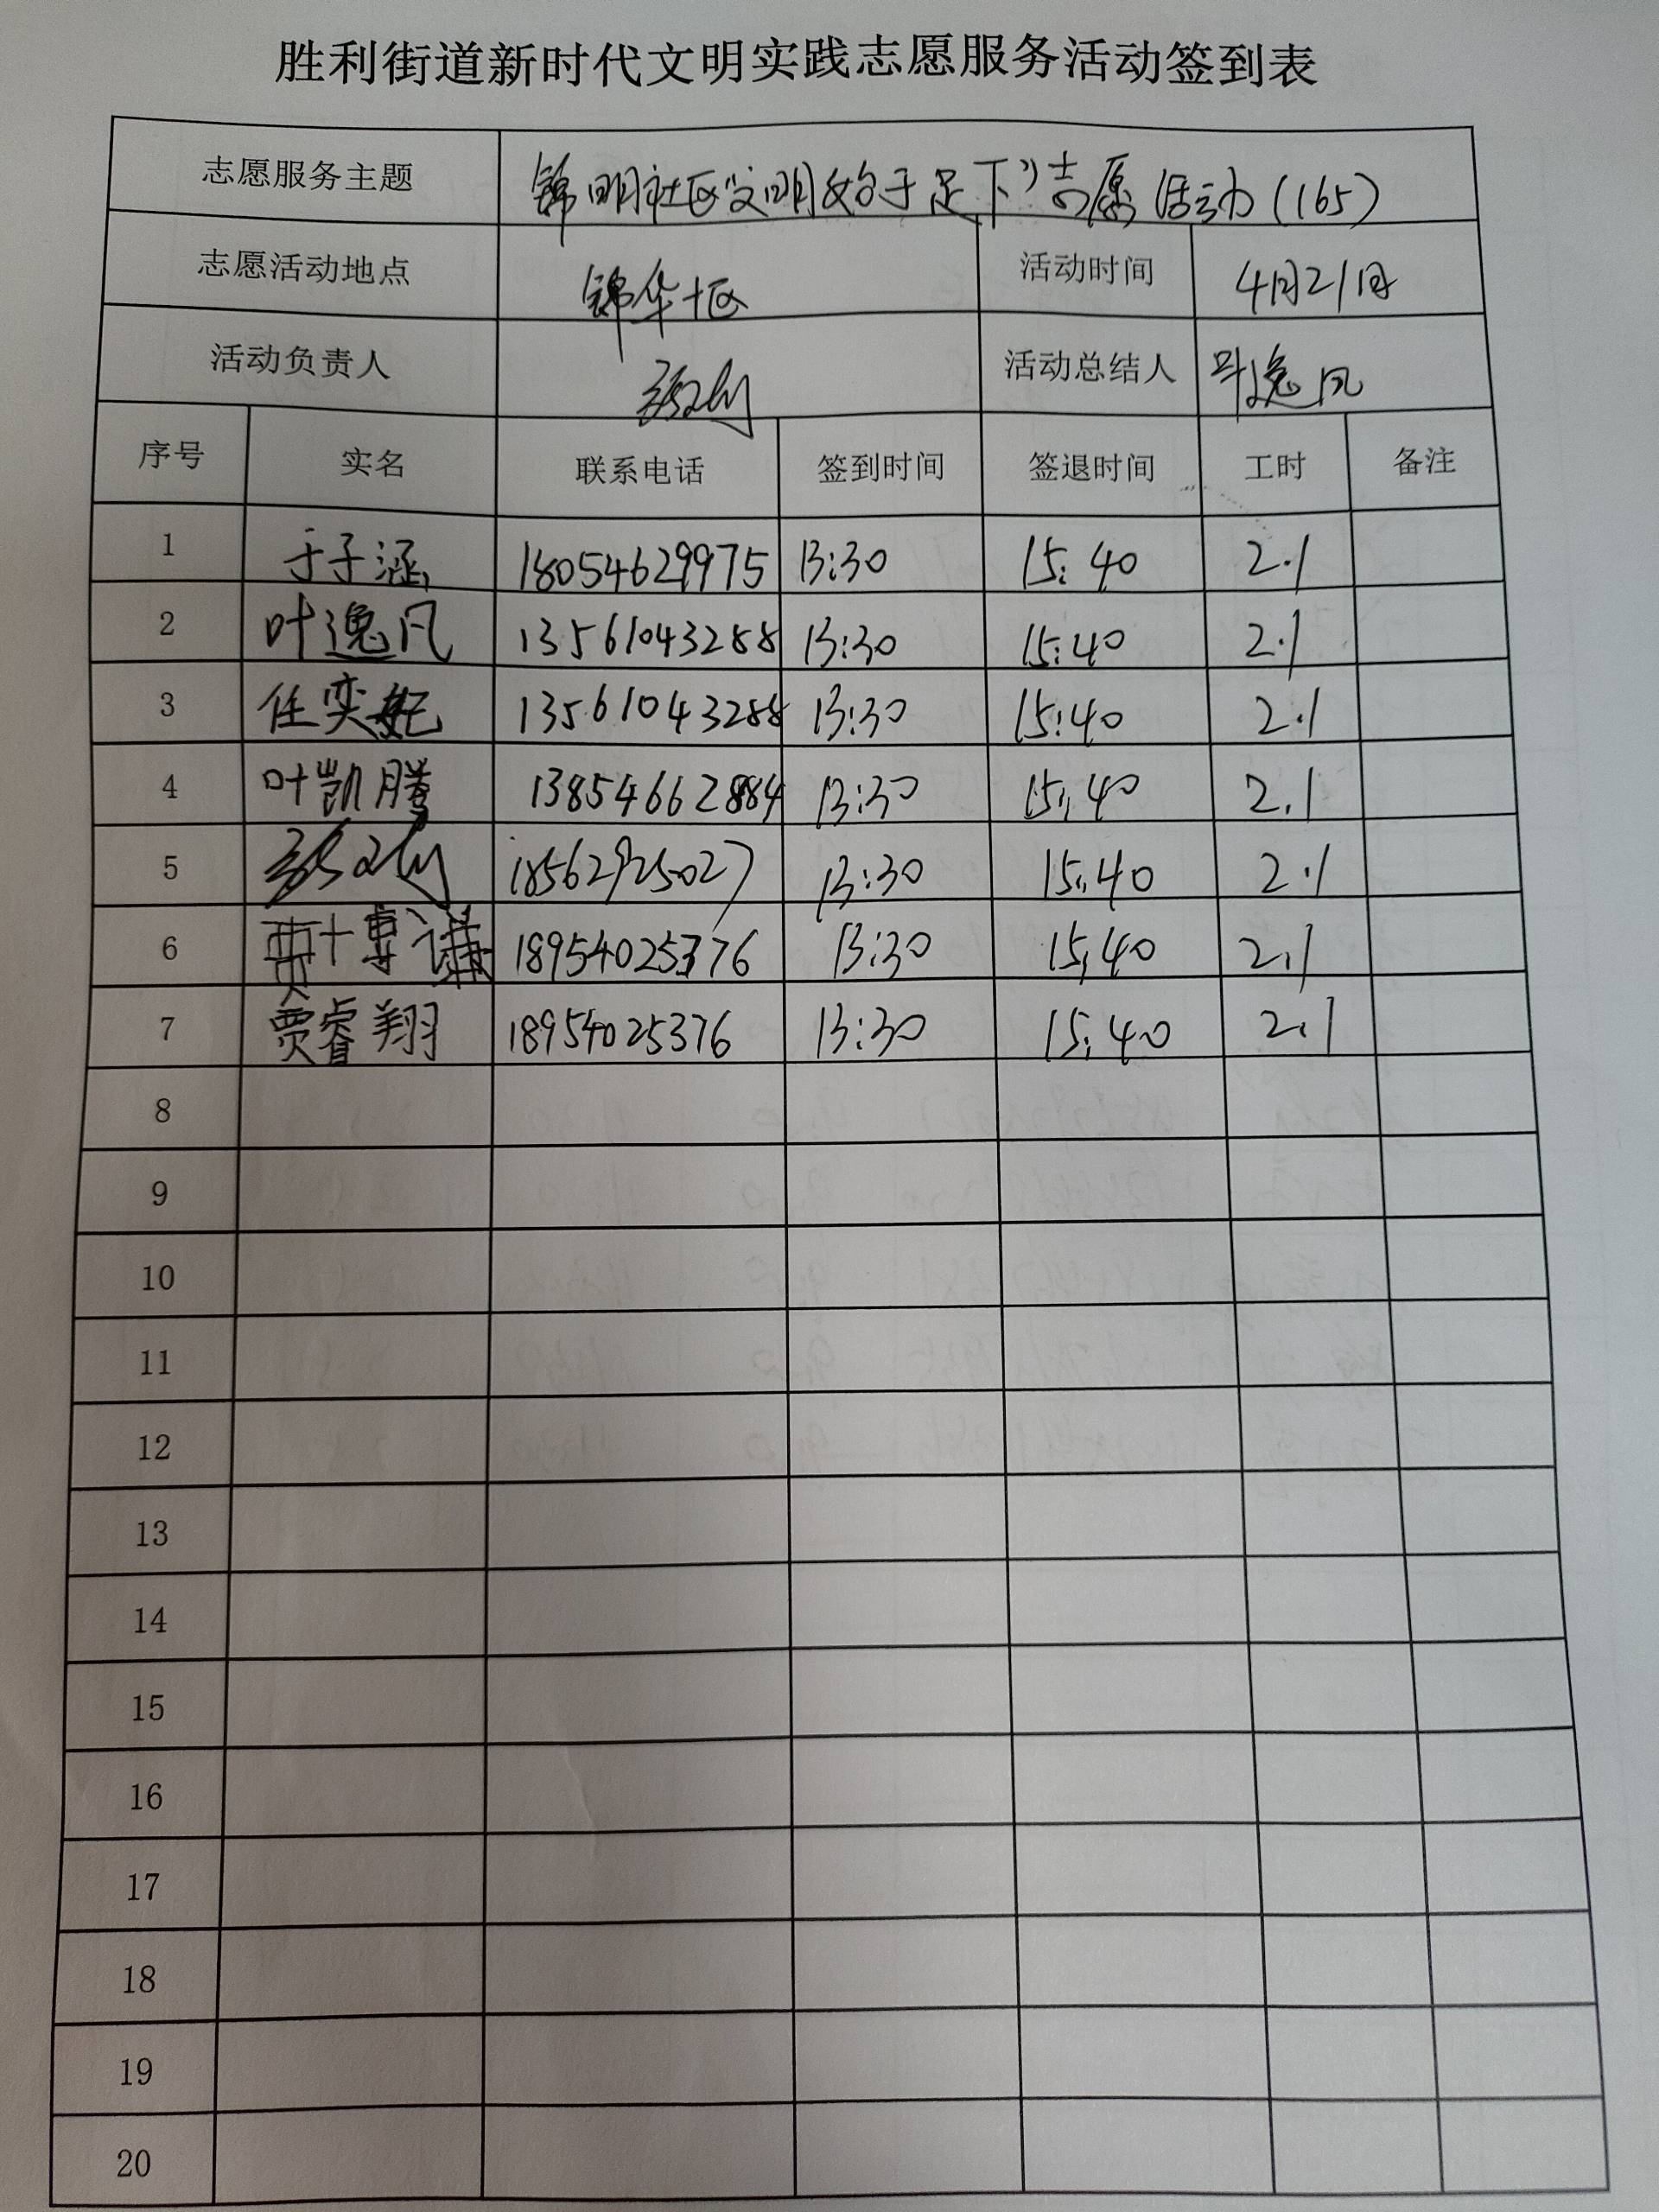 胜利街道新时代文明实践志愿服务活动签到表
志愿服务主题 锦明社区文明始于足下”志愿活动(165)
志愿活动地点 锦华十区 活动时间 4月21日
活动负责人 活动总结人 叶逸风
序号 实名 联系电话 签到时间 签退时间 工时 备注
1 于子涵 18054629975 13:30 15:40 2.1
2 叶逸风 13561043288 13:30 15:40 2.1
3 任奕妃 13561043288 13:30 15:40 2.1
4 叶凯腾 13854662884 13:30 15:40 2.1
5 18562925027 13:30 15:40 2.1
6 贾博谦 18954025376 13:30 15:40 2.1
7 贾睿翔 18954025376 13:30 15:40 2.1
8
9
10
11
12
13
14
15
16
17
18
19
20